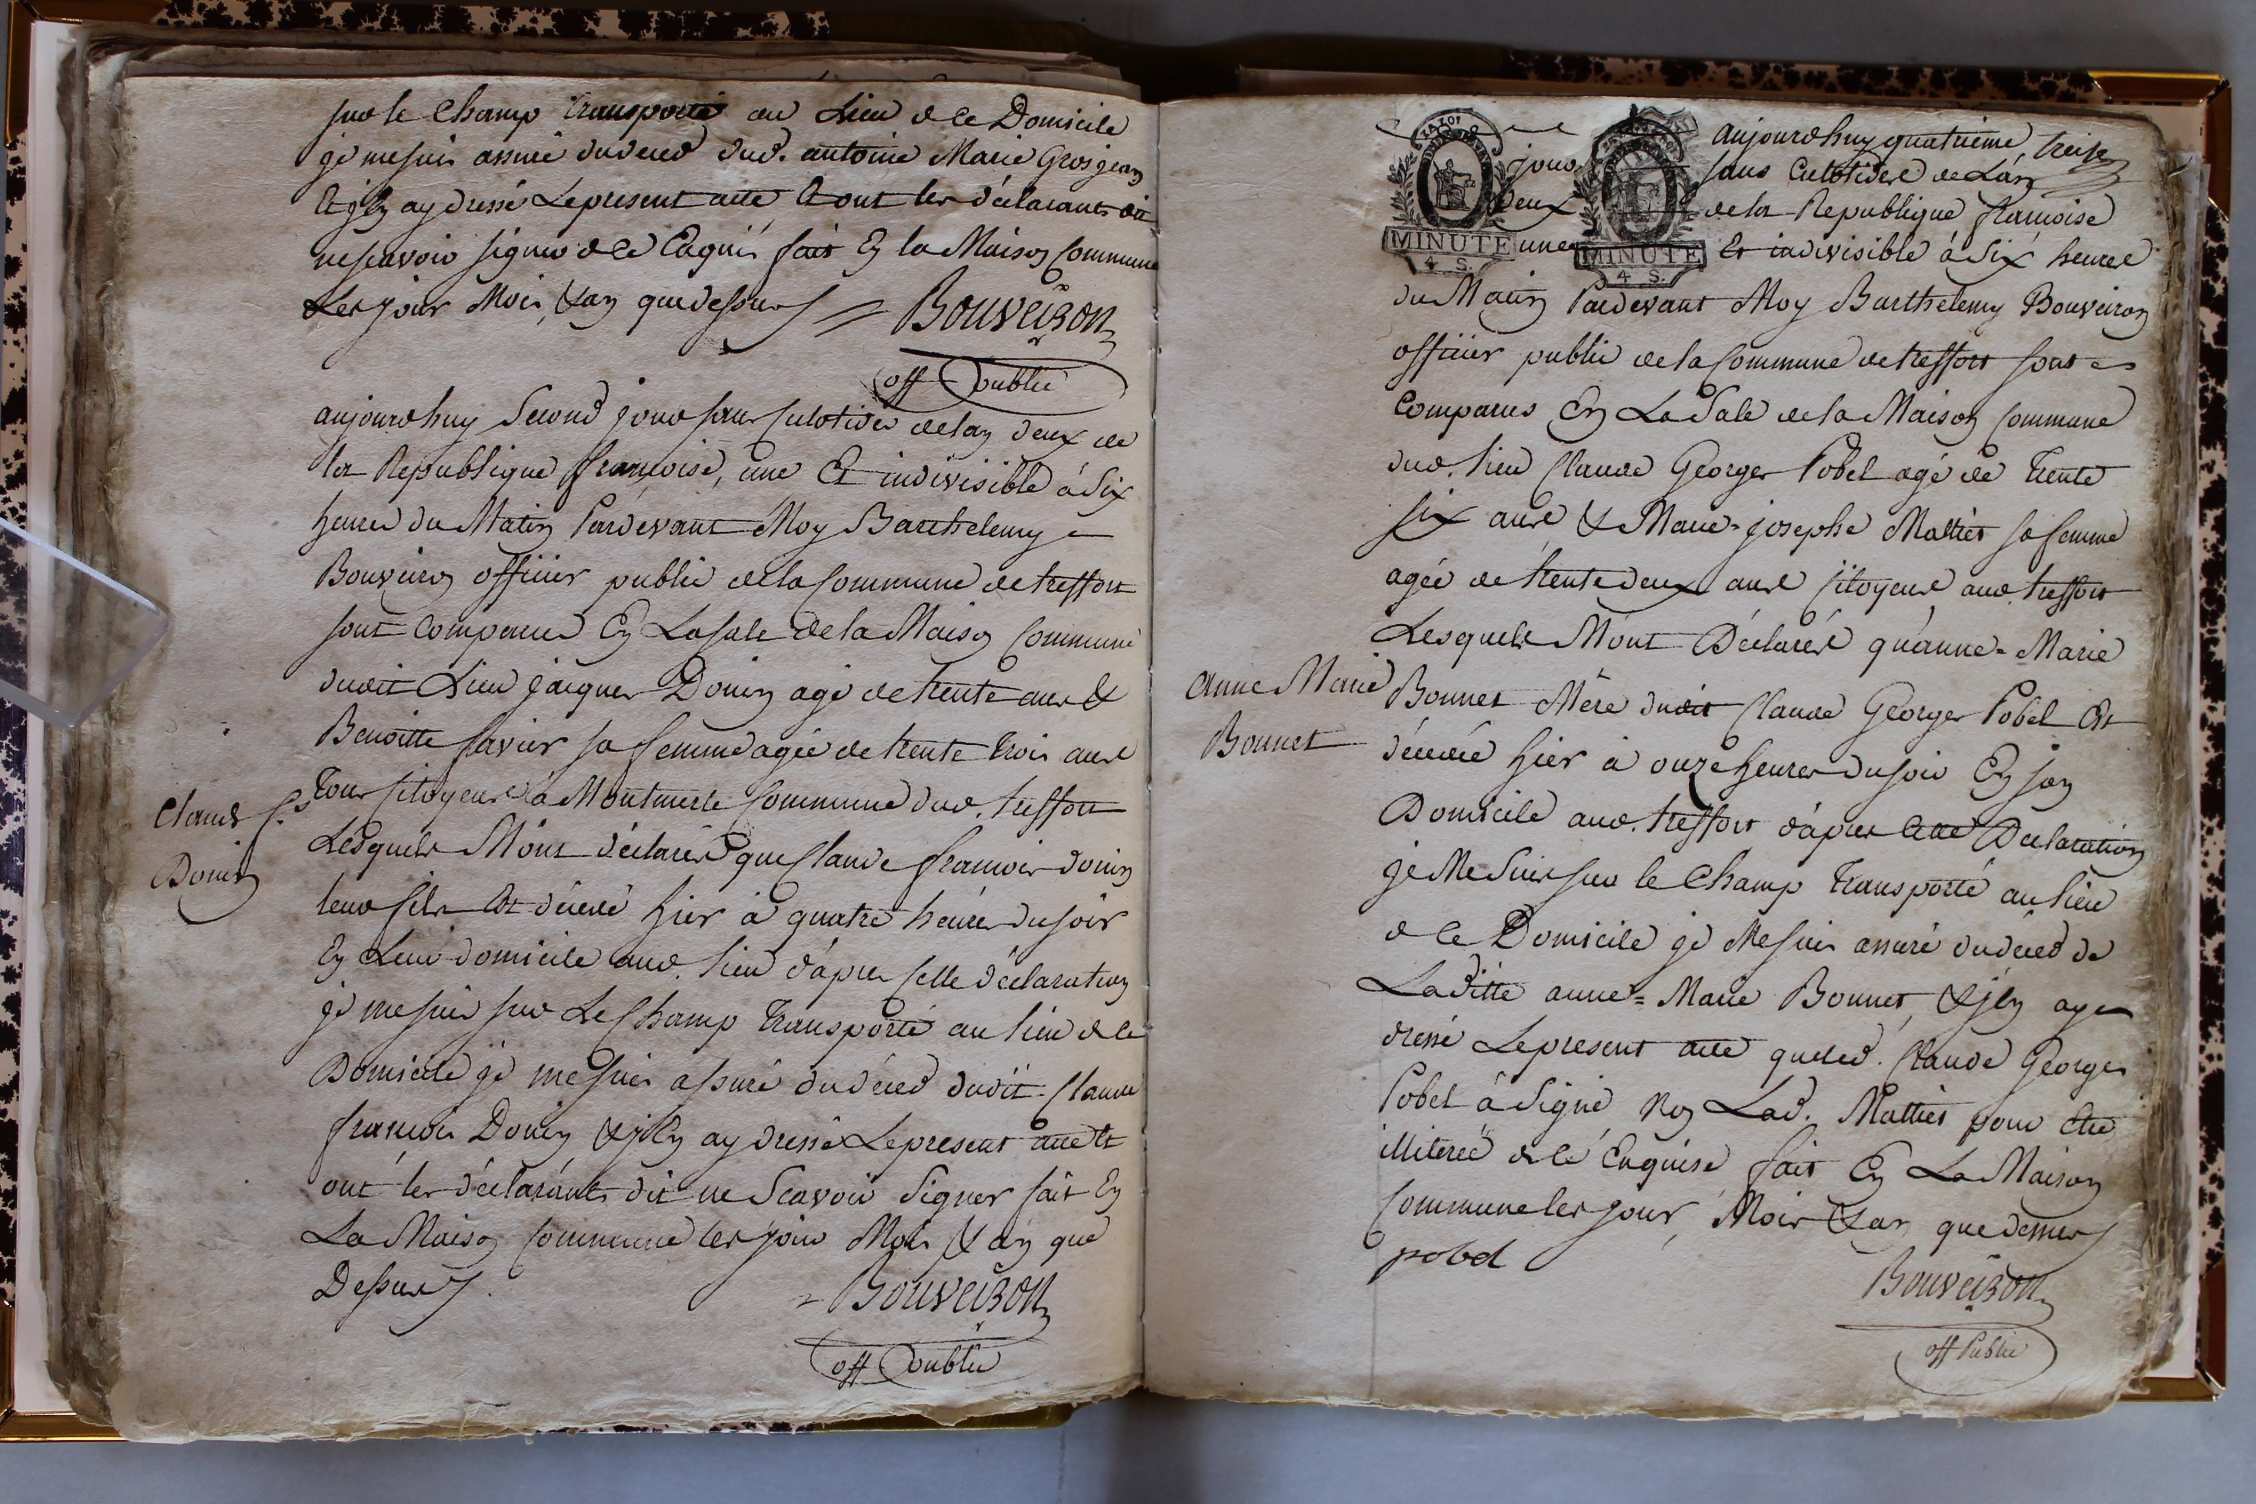 sur le Champ transporté au Lieu de ce Domicile
je me suis assuré du deced dud. antoine Marie Grosjean
Et j'en ay dressé Le present acte Et ont les déclarants dit
ne scavoir signer de ce Enquis fait En la Maison Commune
Les jour Mois & an que dessus
Bouveiron
off public
aujourdhuy Second jour sans culotides de lan deux de
la Republique françoise, une Et indivisible à Six
heures du Matin Pardevant Moy Barthelemy
Bouveiron officier public de la Commune de treffort
sont comparus En La sale de la Maison Commune
dudit Lieu jacques Donin agé de trente ans &
Benoitte favier sa femme agée de trente trois ans
tous citoyens à Montmerle Commune dud. treffort
Claude f.s
Donin
Lesquels M'ont déclarés que Claude françois donin
leur fils Est décédé hier à quatre heures du soir
En Leur domicile aud. lieu d'après cette déclaration
je me suis sur Le Champ transporté au lieu de ce
Domicile je me suis assuré du déced dudit Claude
françois Donin & j'En ay dressé Le present acte Et
ont les déclarants dit ne Scavoir Signer fait En
La Maison Commune les jour Mois & an que
Dessus
Bouveiron
off public
aujourdhuy quatrieme treize
jour sans culotides de Lan
deux de la Republique françoise
MINUTE une MINUTE Et indivisible à Six heures
4 S. 4 S.
du Matin Pardevant Moy Barthelemy Bouveiron
officier public de la Commune de treffort sont
Comparus En La Sale de la Maison Commune
dud. lieu Claude George Pobel agé de trente
six ans & Marie-josephe Mathieu sa femme
agée de trente deux ans citoyens aud. treffort
Lesquels M'ont Déclarés qu'anne-Marie
Anne Marie
Bonnet
Bonnet Mère dudit Claude George Pobel Est
décédé hier à onze heures du soir En son
Domicile aud. treffort d'après cette Declaration
je Me Suis sur le Champ transporté au lieu
de ce Domicile je Me suis assuré du déced de
Laditte anne-Marie Bonnet, & j'En ay
dressé Le present acte que led. Claude George
Pobel à Signé Non Lad. Mathieu pour etre
illiterée de ce Enquise fait En La Maison
Commune les jour, Mois & an que dessus
pobel
Bouveiron
off Public